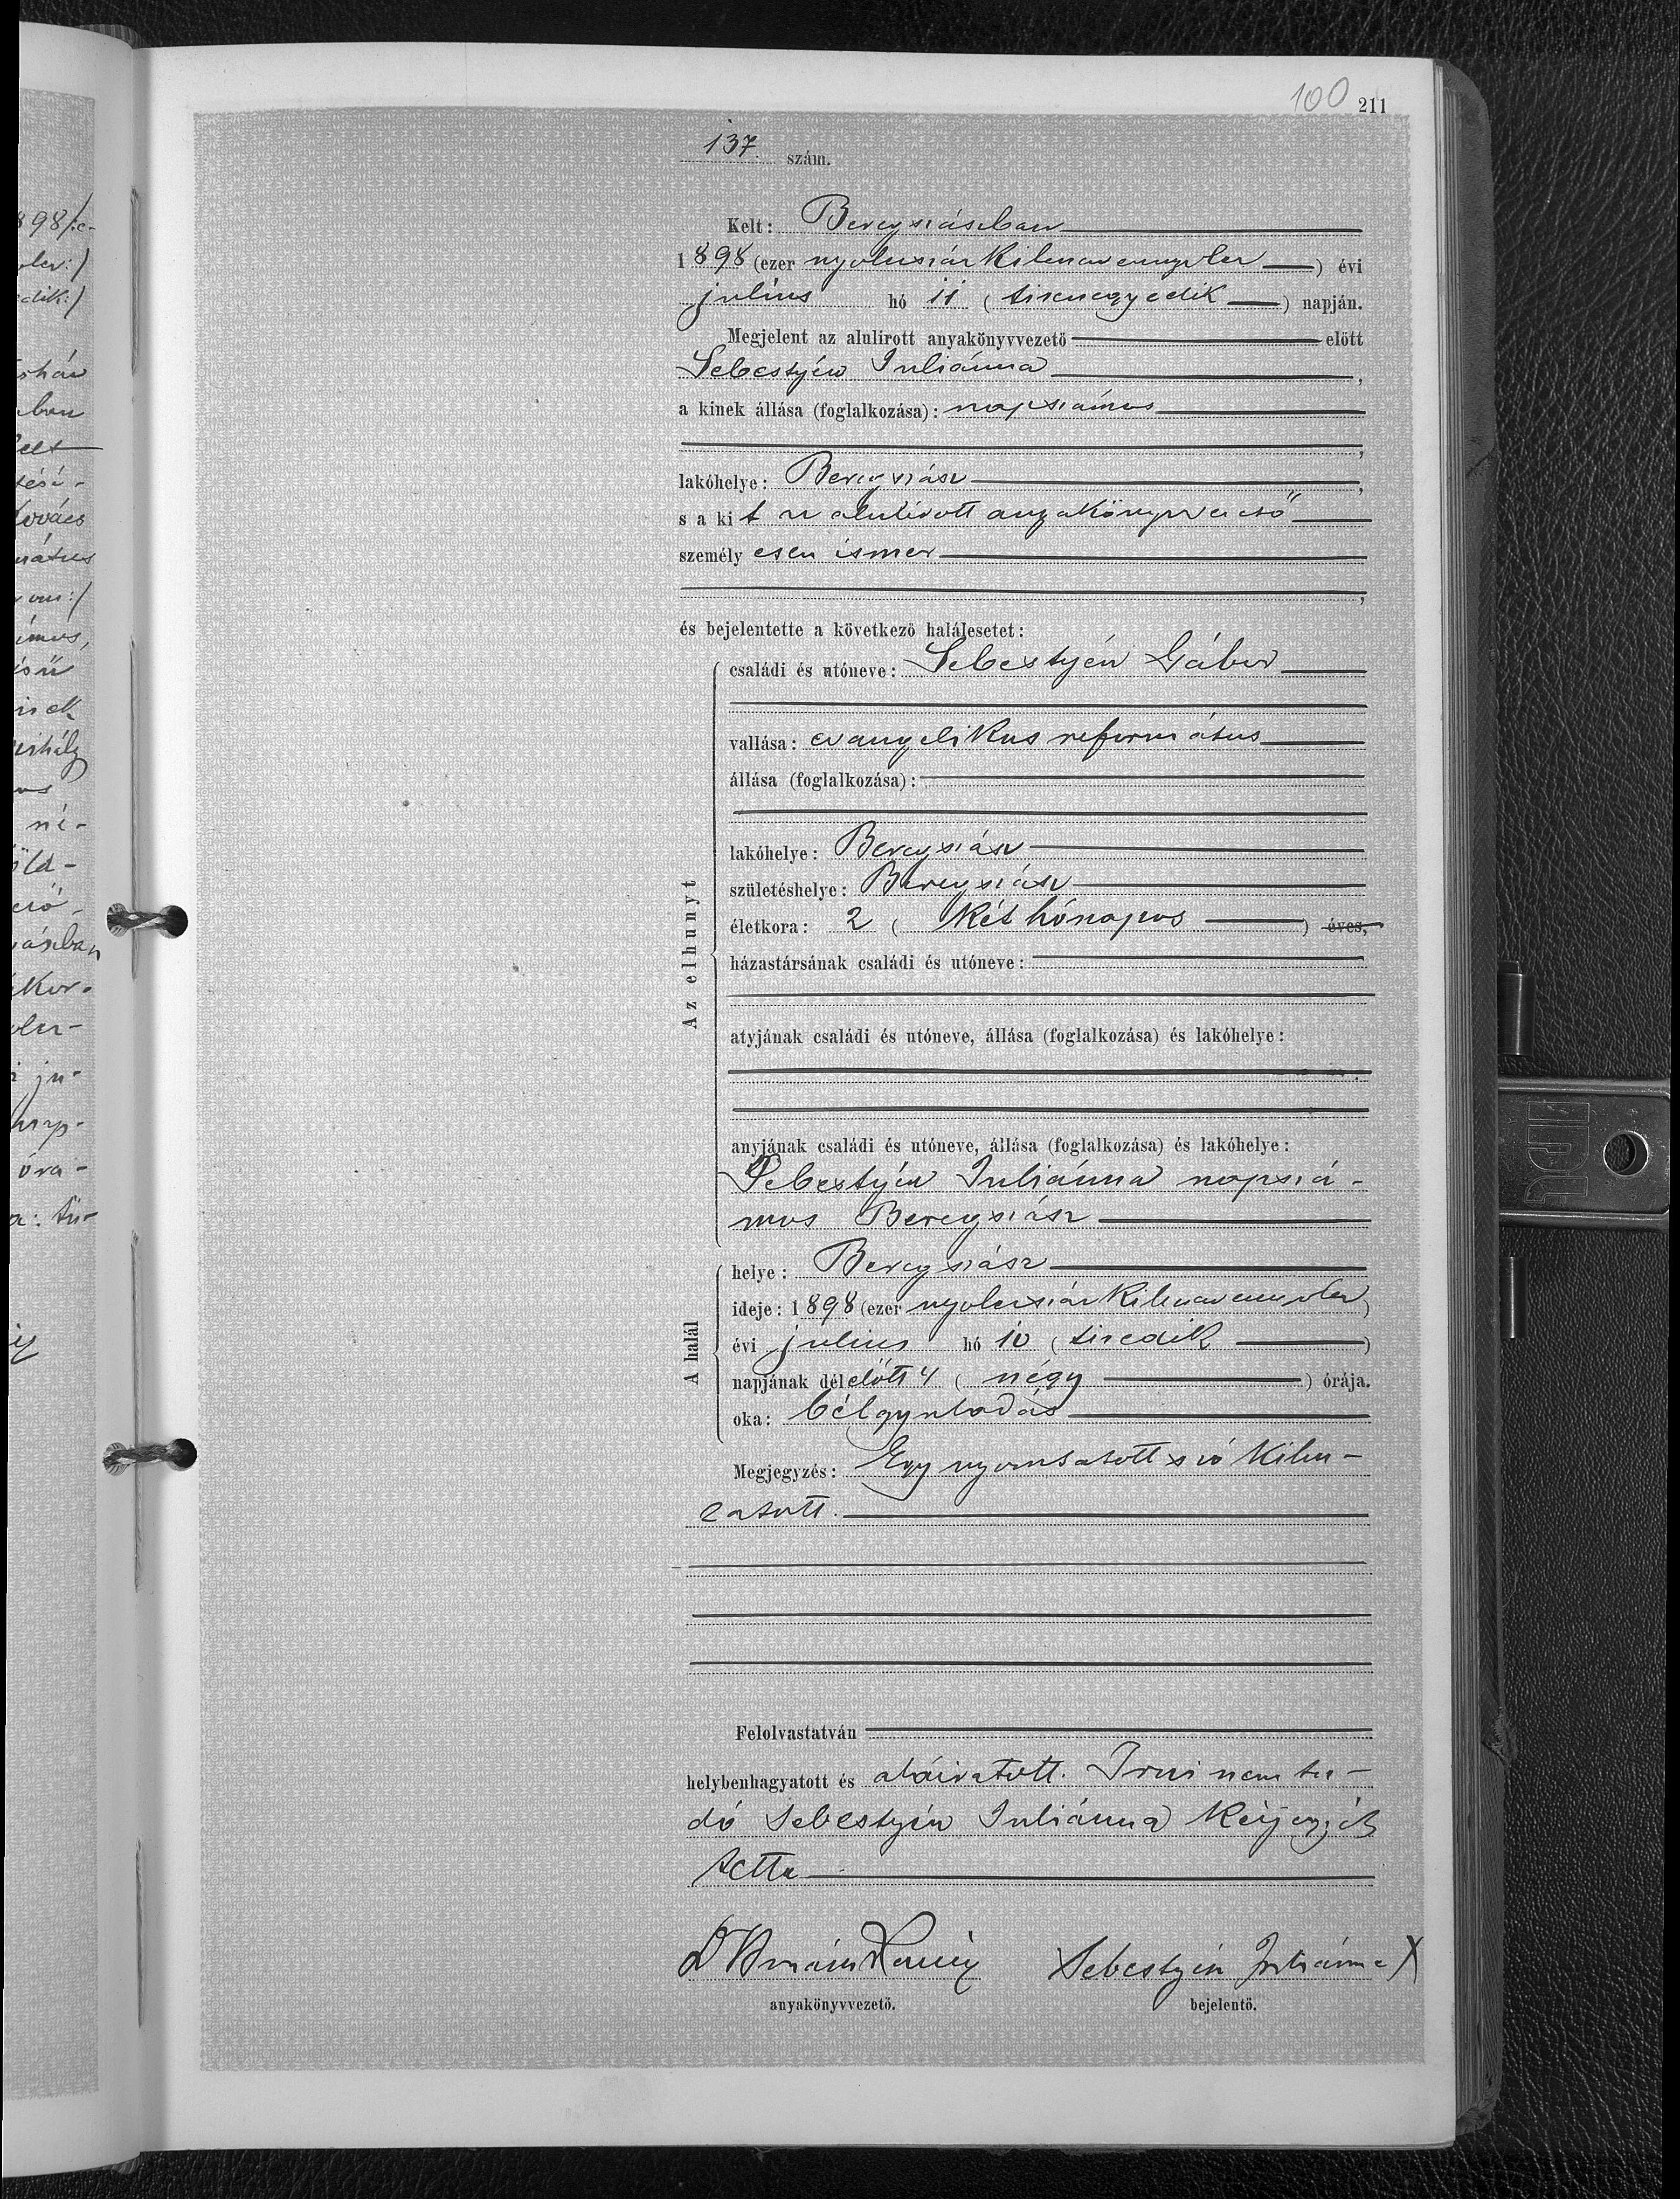 100 211
137. szám.
Kelt: Beregszászban
1898 (ezer nyolcszázkilencvennyolcz) évi
julius hó 11 (tizenegyedik) napján.
Megjelent az alulírott anyakönyvvezető előtt
Sebestyén Juliánna,
a kinek állása (foglalkozása): napszámos
,
lakóhelye: Beregszász,
s a kit az alulírott anyakönyvvezető
személyesen ismer
,
és bejelentette a következő halálesetet:
Az elhunyt
családi és utóneve: Sebestyén Gábor
vallása: evangelikus református
állása (foglalkozása):
lakóhelye: Beregszász
születéshelye: Beregszász
életkora: 2 (Két hónapos) éves,
házastársának családi és utóneve:
atyjának családi és utóneve, állása (foglalkozása) és lakóhelye:
anyjának családi és utóneve, állása (foglalkozása) és lakóhelye:
Sebestyén Juliánna napszá-
mos Beregszász
A halál
helye: Beregszász
ideje: 1898 (ezer nyolcszázkilencvennyolcz)
évi julius hó 10 (tizedik)
napjának délelőtt 4 (négy) órája.
oka: bélgyuladás
Megjegyzés: Egy nyomtatott szó
Felolvastatván
helybenhagyatott és aláiratott. Irni nem tu-
dó Sebestyén Juliánna Kézjegyét
tette
Sebestyén Juliánna X
anyakönyvvezető. bejelentő.
898/:e-
dik:)
ovács
óra-